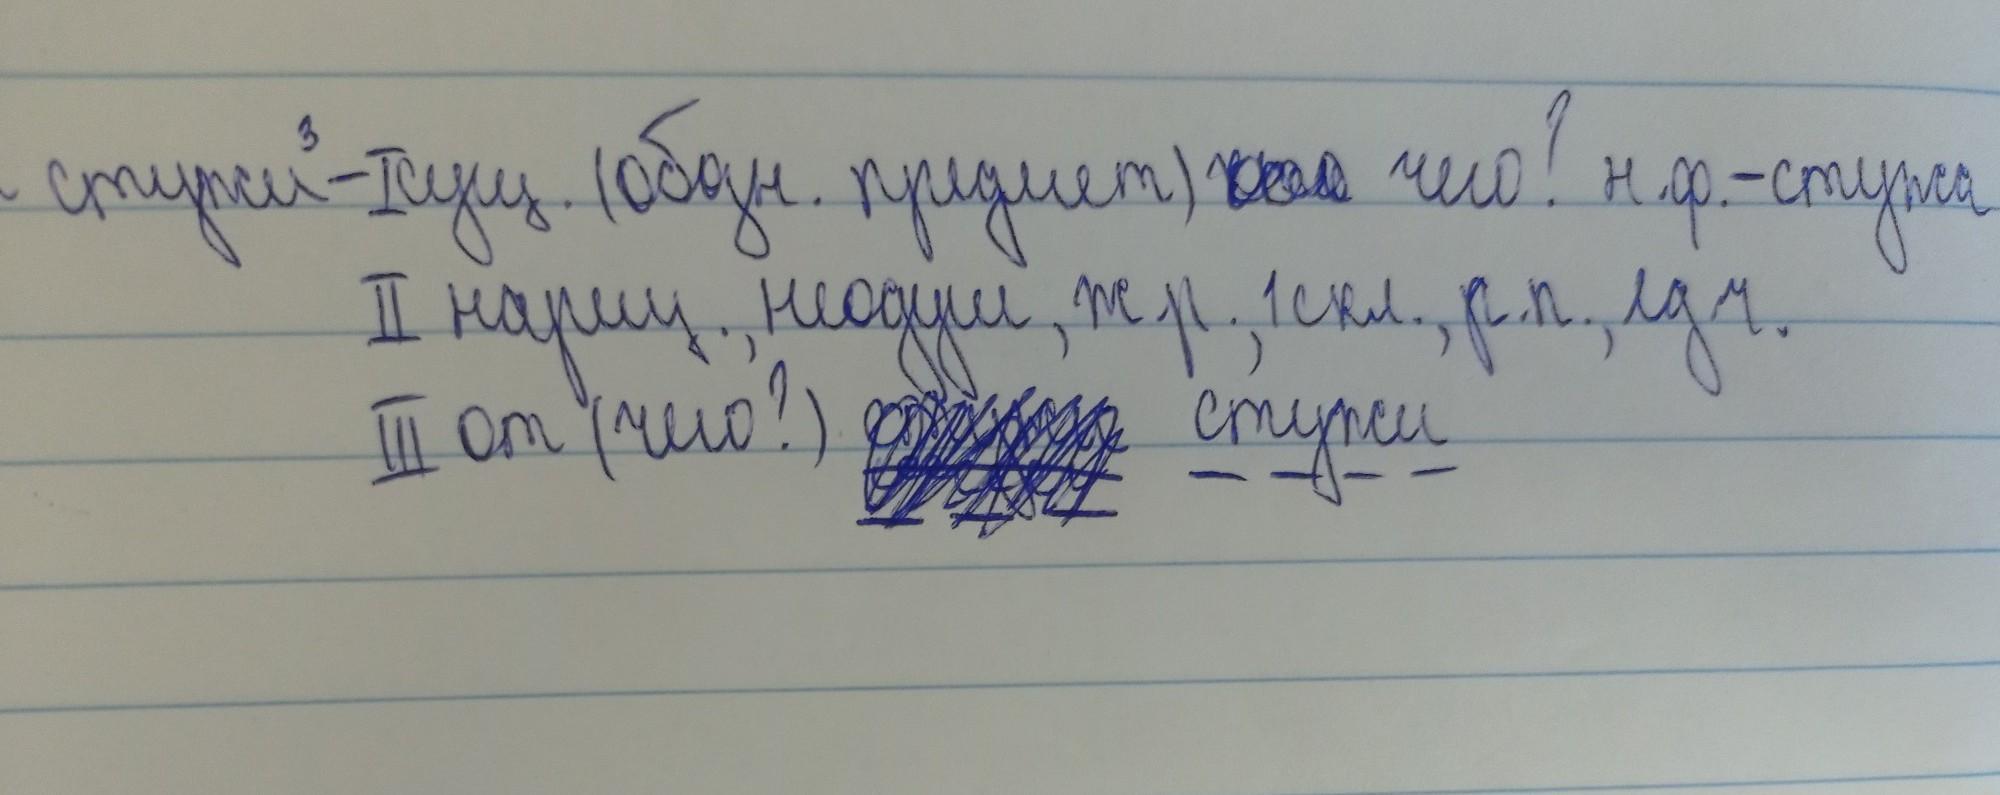 стужи³ - I сущ. (обозн. предмет) чего? н.ф. - стужа
II нариц., неодуш, ж.р., 1 скл., р.п., ед ч.
III от (чего?) стужи